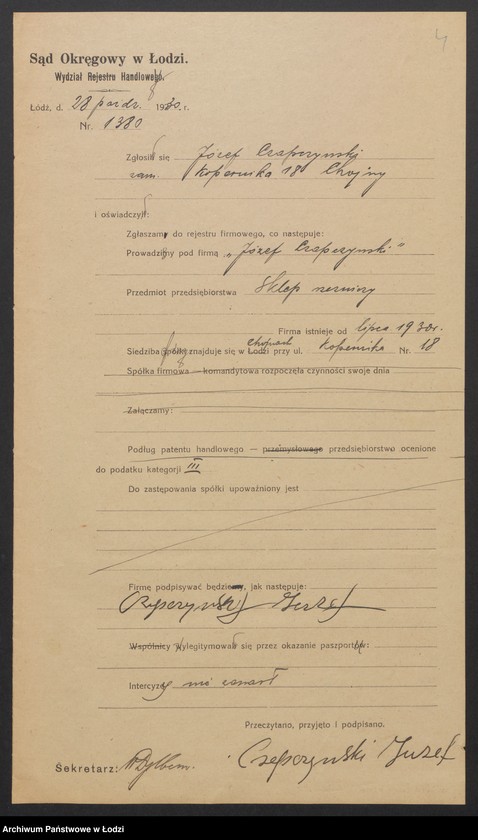 4
Sąd Okręgowy w Łodzi.
Wydział Rejestru Handlowego.
Łódź, d. 28 paźdz. 1930. r.
Nr. 1380
Zgłosił się Józef Czapczyński
zam. Kopernika 18 Chojny
i oświadczył:
Zgłaszam do rejestru firmowego, co następuje:
Prowadzimy pod firmą „Józef Czapczyński"
Przedmiot przedsiębiorstwa Sklep
Firma istnieje od lipca 1930r.
Chojnach
Siedziba spółki znajduje się w Łodzi przy ul. Kopernika Nr. 18
Spółka firmowa — komandytowa rozpoczęła czynności swoje dnia
Załączamy:
Podług patentu handlowego — przemysłowego przedsiębiorstwo ocenione
do podatku kategorji III
Do zastępowania spółki upoważniony jest
Firmę podpisywać będziemy, jak następuje:
Czepczyński Juzef
Wspólnicy wylegitymowali się przez okazanie paszportów:
Intercyzy nie zawarł
Przeczytano, przyjęto i podpisano.
Sekretarz: Czepczyński Juzef
Archiwum Państwowe w Łodzi